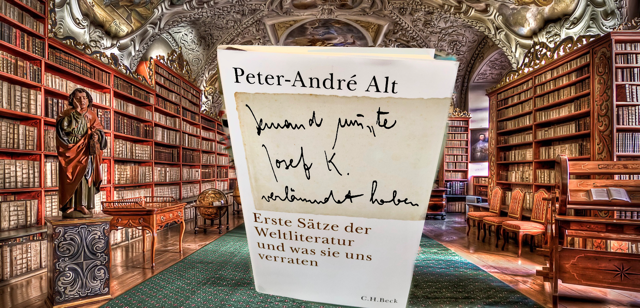 Peter-André Alt
Jemand musste
Josef K.
verläumdet haben
Erste Sätze der
Weltliteratur
und was sie uns
verraten
C.H.Beck